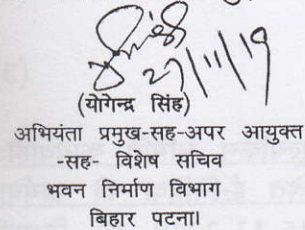 27/11/19
(योगेन्द्र सिंह)
अभियंता प्रमुख-सह-अपर आयुक्त
-सह- विशेष सचिव
भवन निर्माण विभाग
बिहार पटना।